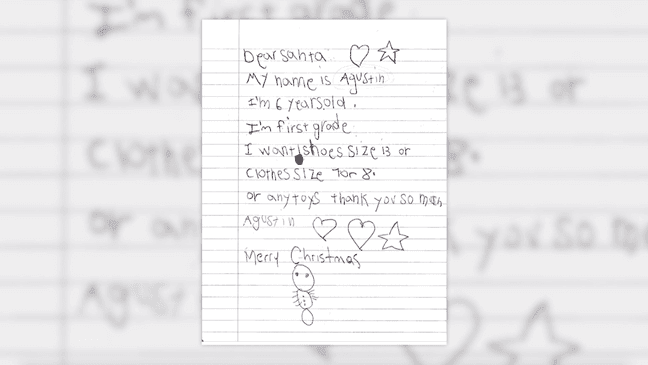 Dear santa
My name is Agustin
I'm 6 years old.
I'm first grade
I want shoes size 13 or
clothes size 7 or 8.
or any toys thank you so mch
Agustin
Merry Christmas